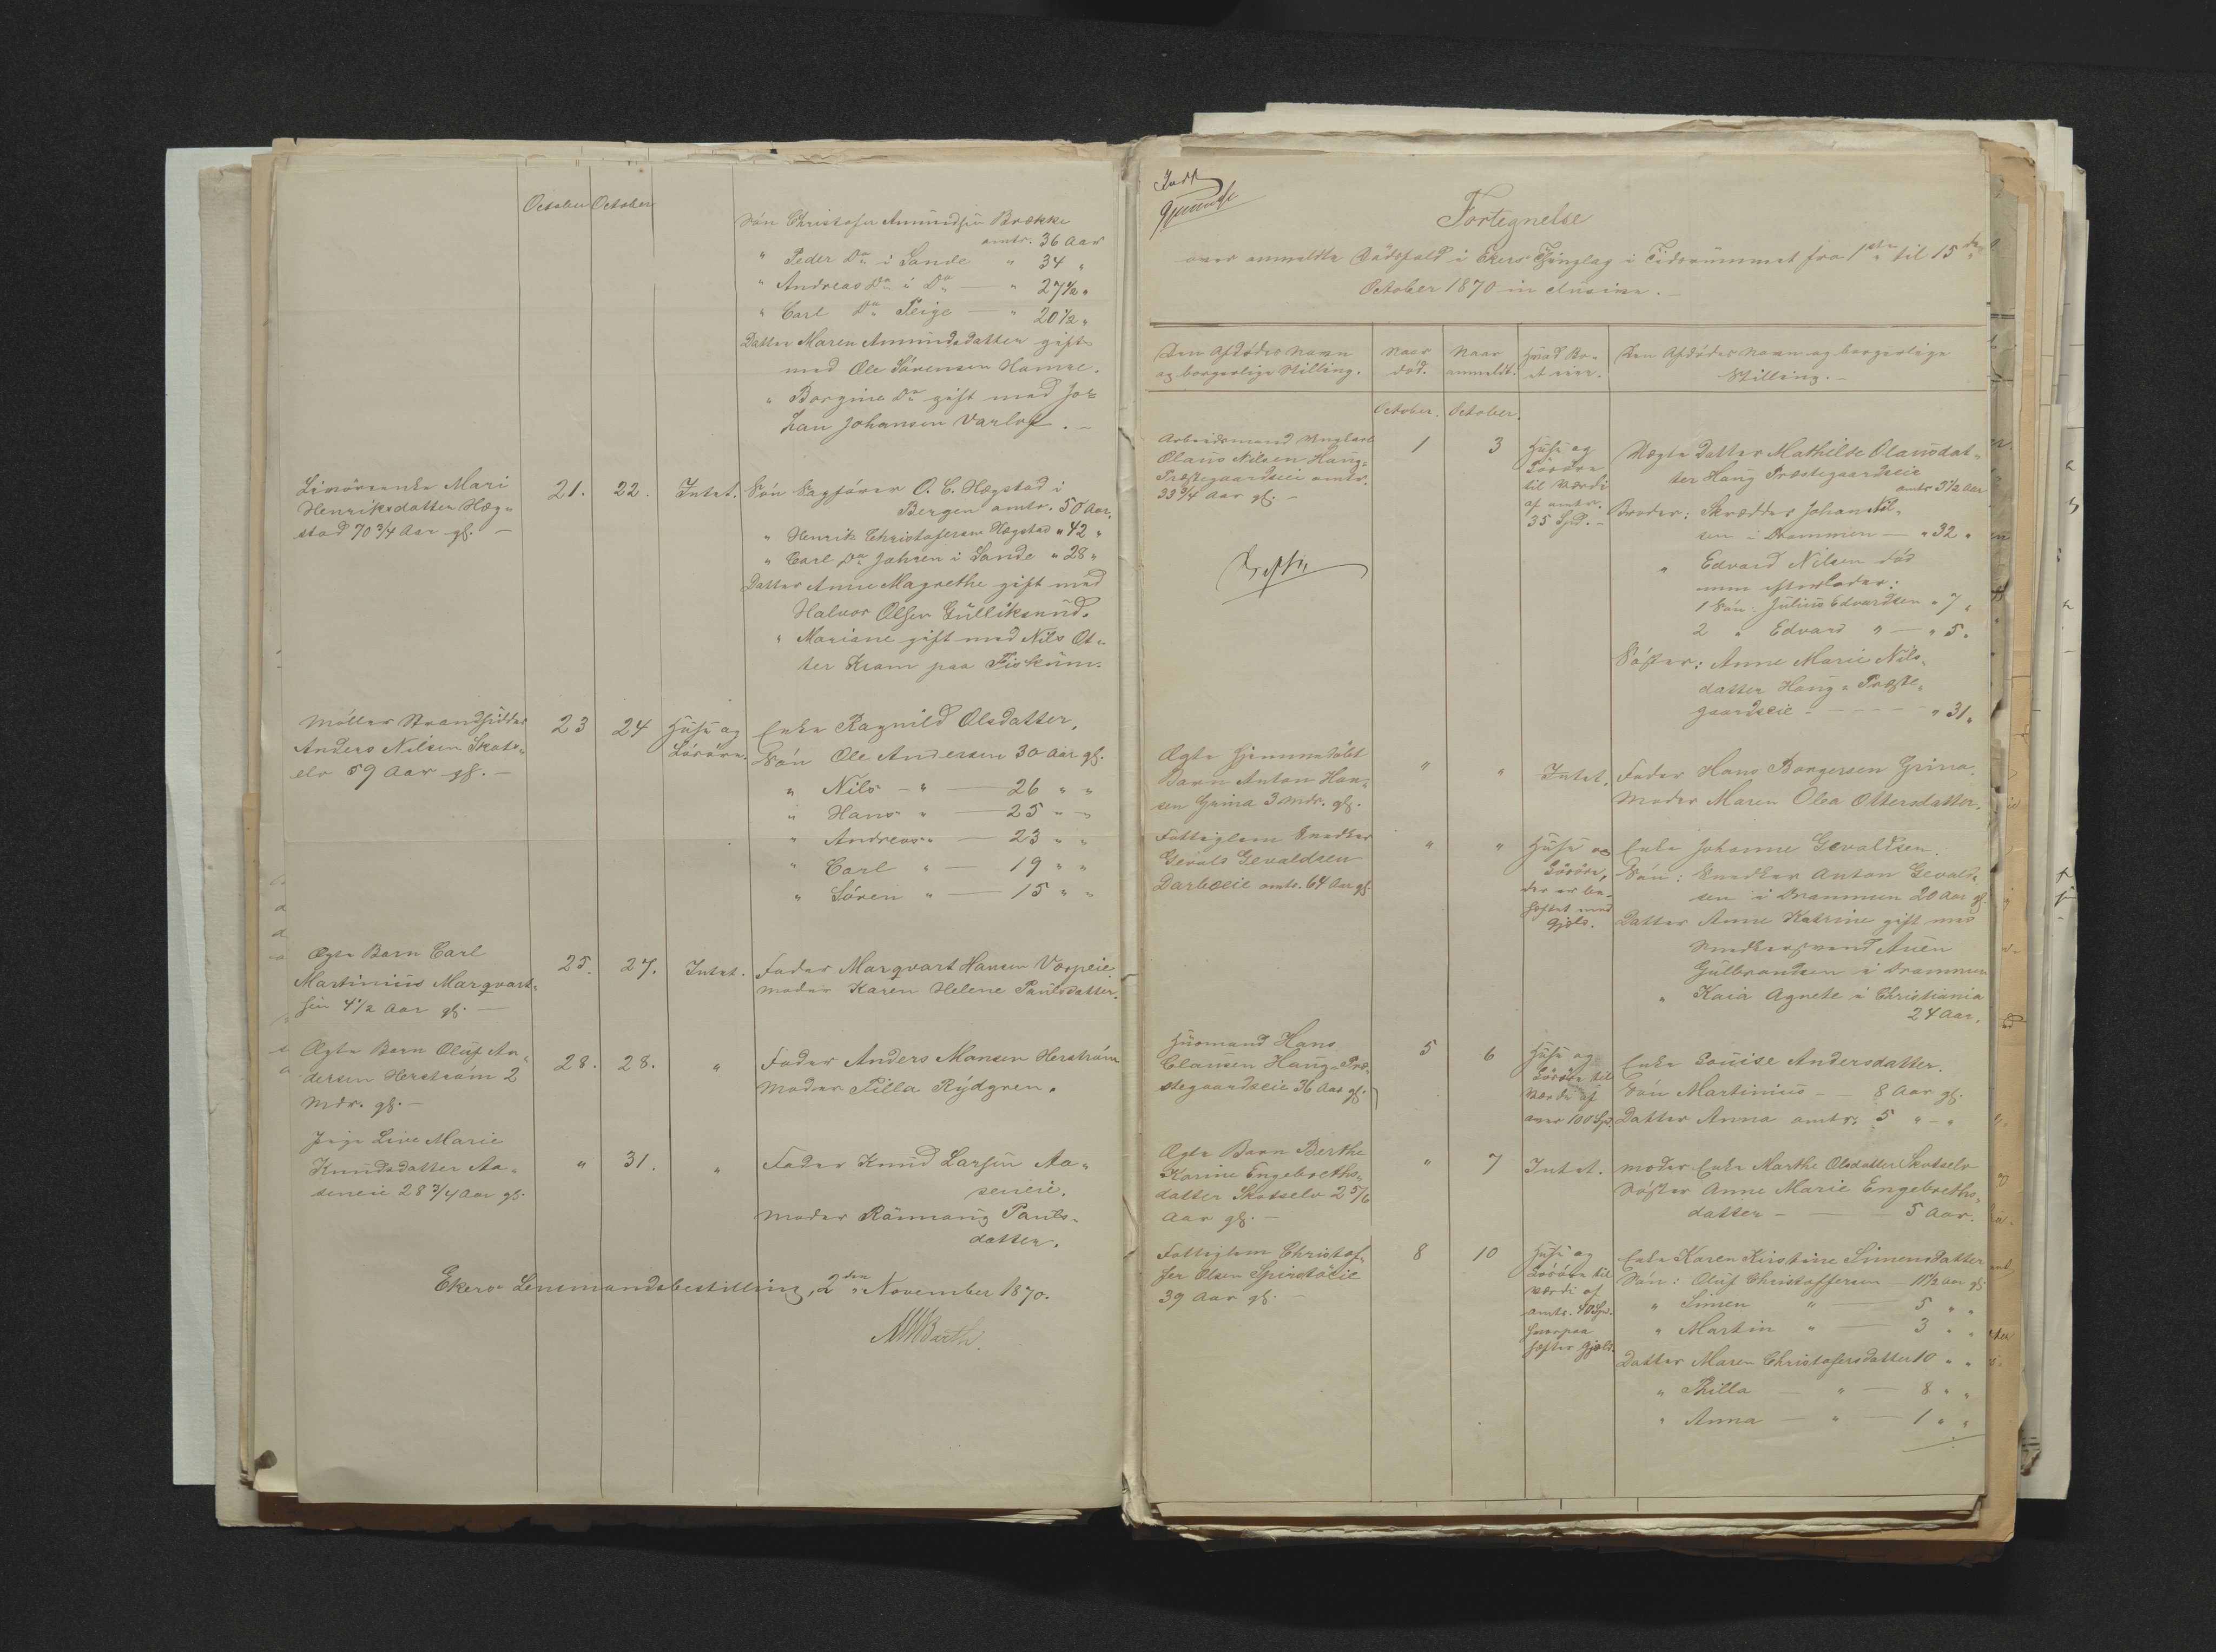 October October
Søn Christofer Amundsen Brække
omtr. 36 Aar
" Peder Do i Sande " 34 "
" Andreas Do i Do — " 27½ "
" Carl Do Teige — " 20½ "
Datter Maren Amundsdatter gift
med Ole Sørensen
" Borgine Do gift med Jo=
han Johansen Varlo
Mari
Henriksdatter Hæg=
stad 70¾ Aar gl. —
21. 22. Intet.
Søn Sagfører O. C. Hægstad i
Bergen omtr. 50 Aar.
" Henrik Christofersen Hægstad " 42 "
" Carl Do Jahren i Sande " 28 "
Datter Anne Magrethe gift med
Halvor Olsen Gulliksrud.
" Mariane gift med Nils Ot=
ter Kram paa Fiskum.
Møller Strandsidder
Anders Nilsen Skots=
elv 59 Aar gl. —
23 24 Huse og
Løsøre.
Enke Ragnild Olsdatter.
Søn Ole Andersen 30 Aar gl.
" Nils — " — 26 " "
" Hans " — 25 " "
" Andreas " — 23 " "
" Carl " — 19 " "
" Søren " — 15 " "
Ægte Barn Carl
Martinius Marqvart=
sen 4½ Aar gl. —
25. 27. Intet.
Fader Marqvart Hansen
Moder Karen Helene Paulsdatter.
Ægte Barn Oluf An=
dersen Herstrøm 2
Mdr. gl. —
28. 28. "
Fader Anders Monsen Herstrøm
Moder Pilla Rydgren.
Pige Live Marie
Knudsdatter Aa=
seneie 28¾ Aar gl.
" 31. "
Fader Knud Larsen Aa=
seneie.
Moder Rønnaug Pauls=
datter.
Ekers Lensmandsbestilling, 2den November 1870.
Barth.
Fortegnelse
over anmeldte Dødsfald i Ekers Thinglag i Tidsrummet fra 1ste til 15de
October 1870 inclusive. —
Den Afdødes Navn
og borgerlige Stilling.
Naar
død.
Naar
anmeldt.
Hvad Bo=
et eier.
Den Afdødes Navn og borgerlige
Stilling. —
October. October.
Arbeidsmand Ungkarl
Olaus Nilsen Haug=
Præstegaardseie omtr.
33¾ Aar gl. —
1 3
Huse og
Løsøre
til Værdi
af omtr.
35 Spd. —
Uægte Datter Mathilde Olausdat=
ter Haug Præstegaardseie
omtr 3½ Aar
Broder: Skrædder Johan Nil=
sen i Drammen — " 32 "
" Edvard Nilsen død
men efterlader:
1 Søn: Julius Edvardsen " 7 "
2 " Edvard " — " 5 "
Søster: Anne Marie Nils=
datter Haug=Præste=
gaardseie — " 31 "
Ægte hjemmedøbt
Barn Anton Han=
sen Grina 3 Mdr. gl.
" " Intet.
Fader Hans Borgersen Grina.
Moder Maren Olea Ottersdatter.
Fattiglem Snedker
Gevald Gevaldsen
Darboeie omtr. 64 Aar gl.
" " Huse og
Løsøre,
der er be=
heftet med
Gjæld.
Enke Johanne Gevaldsen.
Søn: Snedker Anton Gevald=
sen i Drammen 20 Aar gl.
Datter Anne Katrine gift med
Snedkersvend Auen
Gulbrandsen i Drammen
" Kaia Agnete i Christiania
24 Aar.
Husmand Hans
Clausen Haug=Præ=
stegaardseie 36 Aar gl.
5 6
Huse og
Løsøre til
Værdi af
over 100 Spd.
Enke Louise Andersdatter.
Søn Martinius — 8 Aar gl.
Datter Anna omtr. 5 " — "
Ægte Barn Berthe
Karine Engebreths=
datter Skotselv 2 5/6
Aar gl. —
" 7 Intet.
Moder Enke Marthe Olsdatter Skotselv
Søster Anne Marie Engebreths=
datter — 5 Aar.
Fattiglem Christof=
fer Olsen
39 Aar gl. —
8 10
Huse og
Løsøre til
Værdi af
omtr. 40 Spd.
hvorpaa
hefter Gjæld.
Enke Karen Kirstine Simensdatter
Søn: Oluf Christoffersen — 11½ Aar gl
" Simen " — 5 " "
" Martin " — 3 " "
Datter Maren Christofersdatter 10 " "
" Thilla — " — 8 " "
" Anna — " — 1 " "